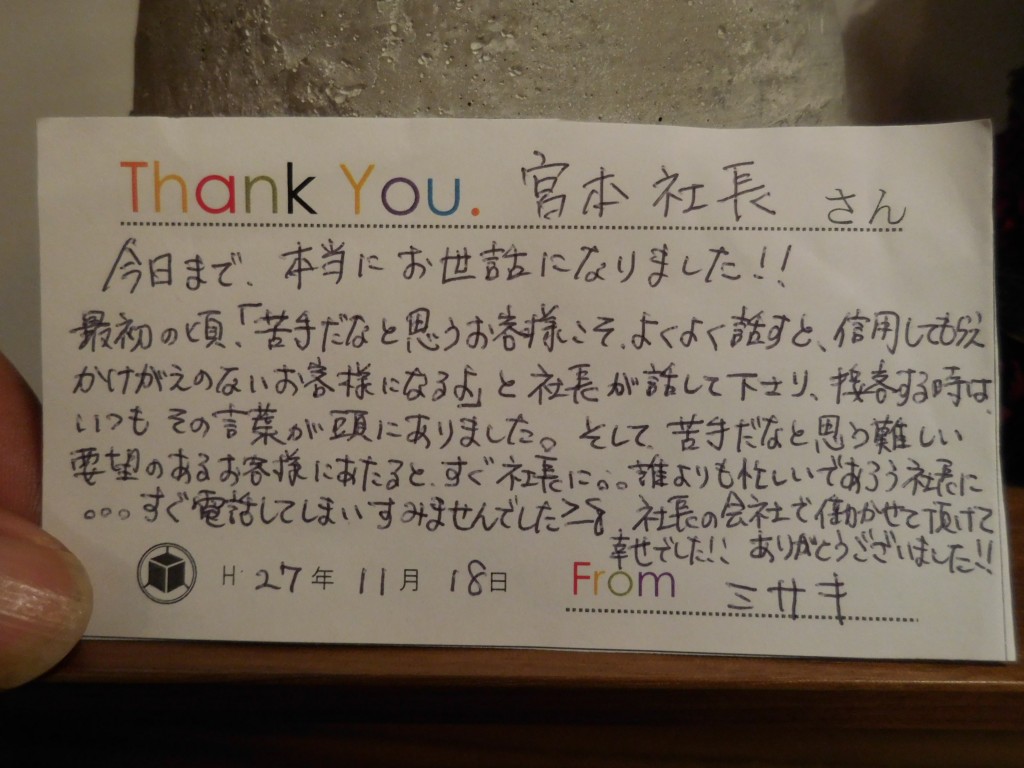 Thank You. 宮本 社長 さん
今日まで、本当に お世話になりました!!
最初の頃、「苦手だなと思うお客様こそ、よくよく話すと、信用してもらえ
かけがえのないお客様になるよ」と 社長が話して下さり、接客する時は、
いつも その言葉が頭にありました。そして、苦手だなと思う難しい
要望のあるお客様にあたると、すぐ社長に。。誰よりも忙しいであろう社長に
。。。すぐ電話してしまいすみませんでした 社長の会社で働かせて頂けて
幸せでした!! ありがとうございました!!
H 27年 11月 18日 From ミサキ